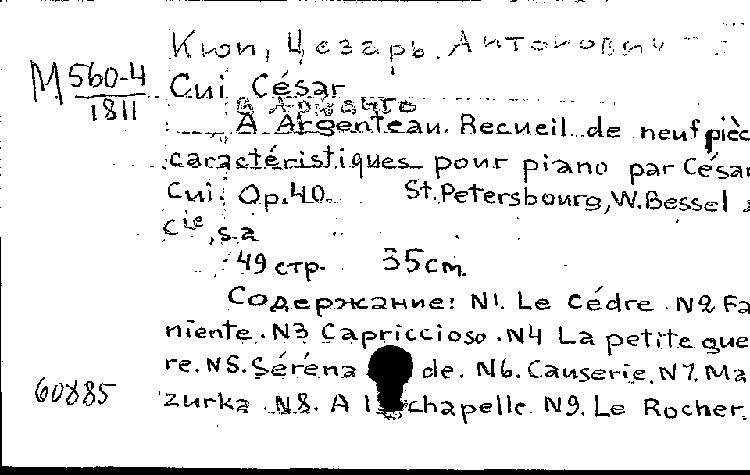 Кюи, Цезарь Антонович
М 560-4
1811
Cui César
A Argenteau. Recueil de neuf pièc
caractéristiques pour piano par César
Cui. Op. 40. St. Petersbourg, W. Bessel
Cie, s.a
49 стр. 35 cm.
Содержание: N1. Le Cédre. N2 Fa
niente. N3 Capriccioso. N4 La petite gue
re. N5. Séréna de. N6. Causerie. N7. Ma
60885
zurka. N8. A l chapelle. N9. Le Rocher.